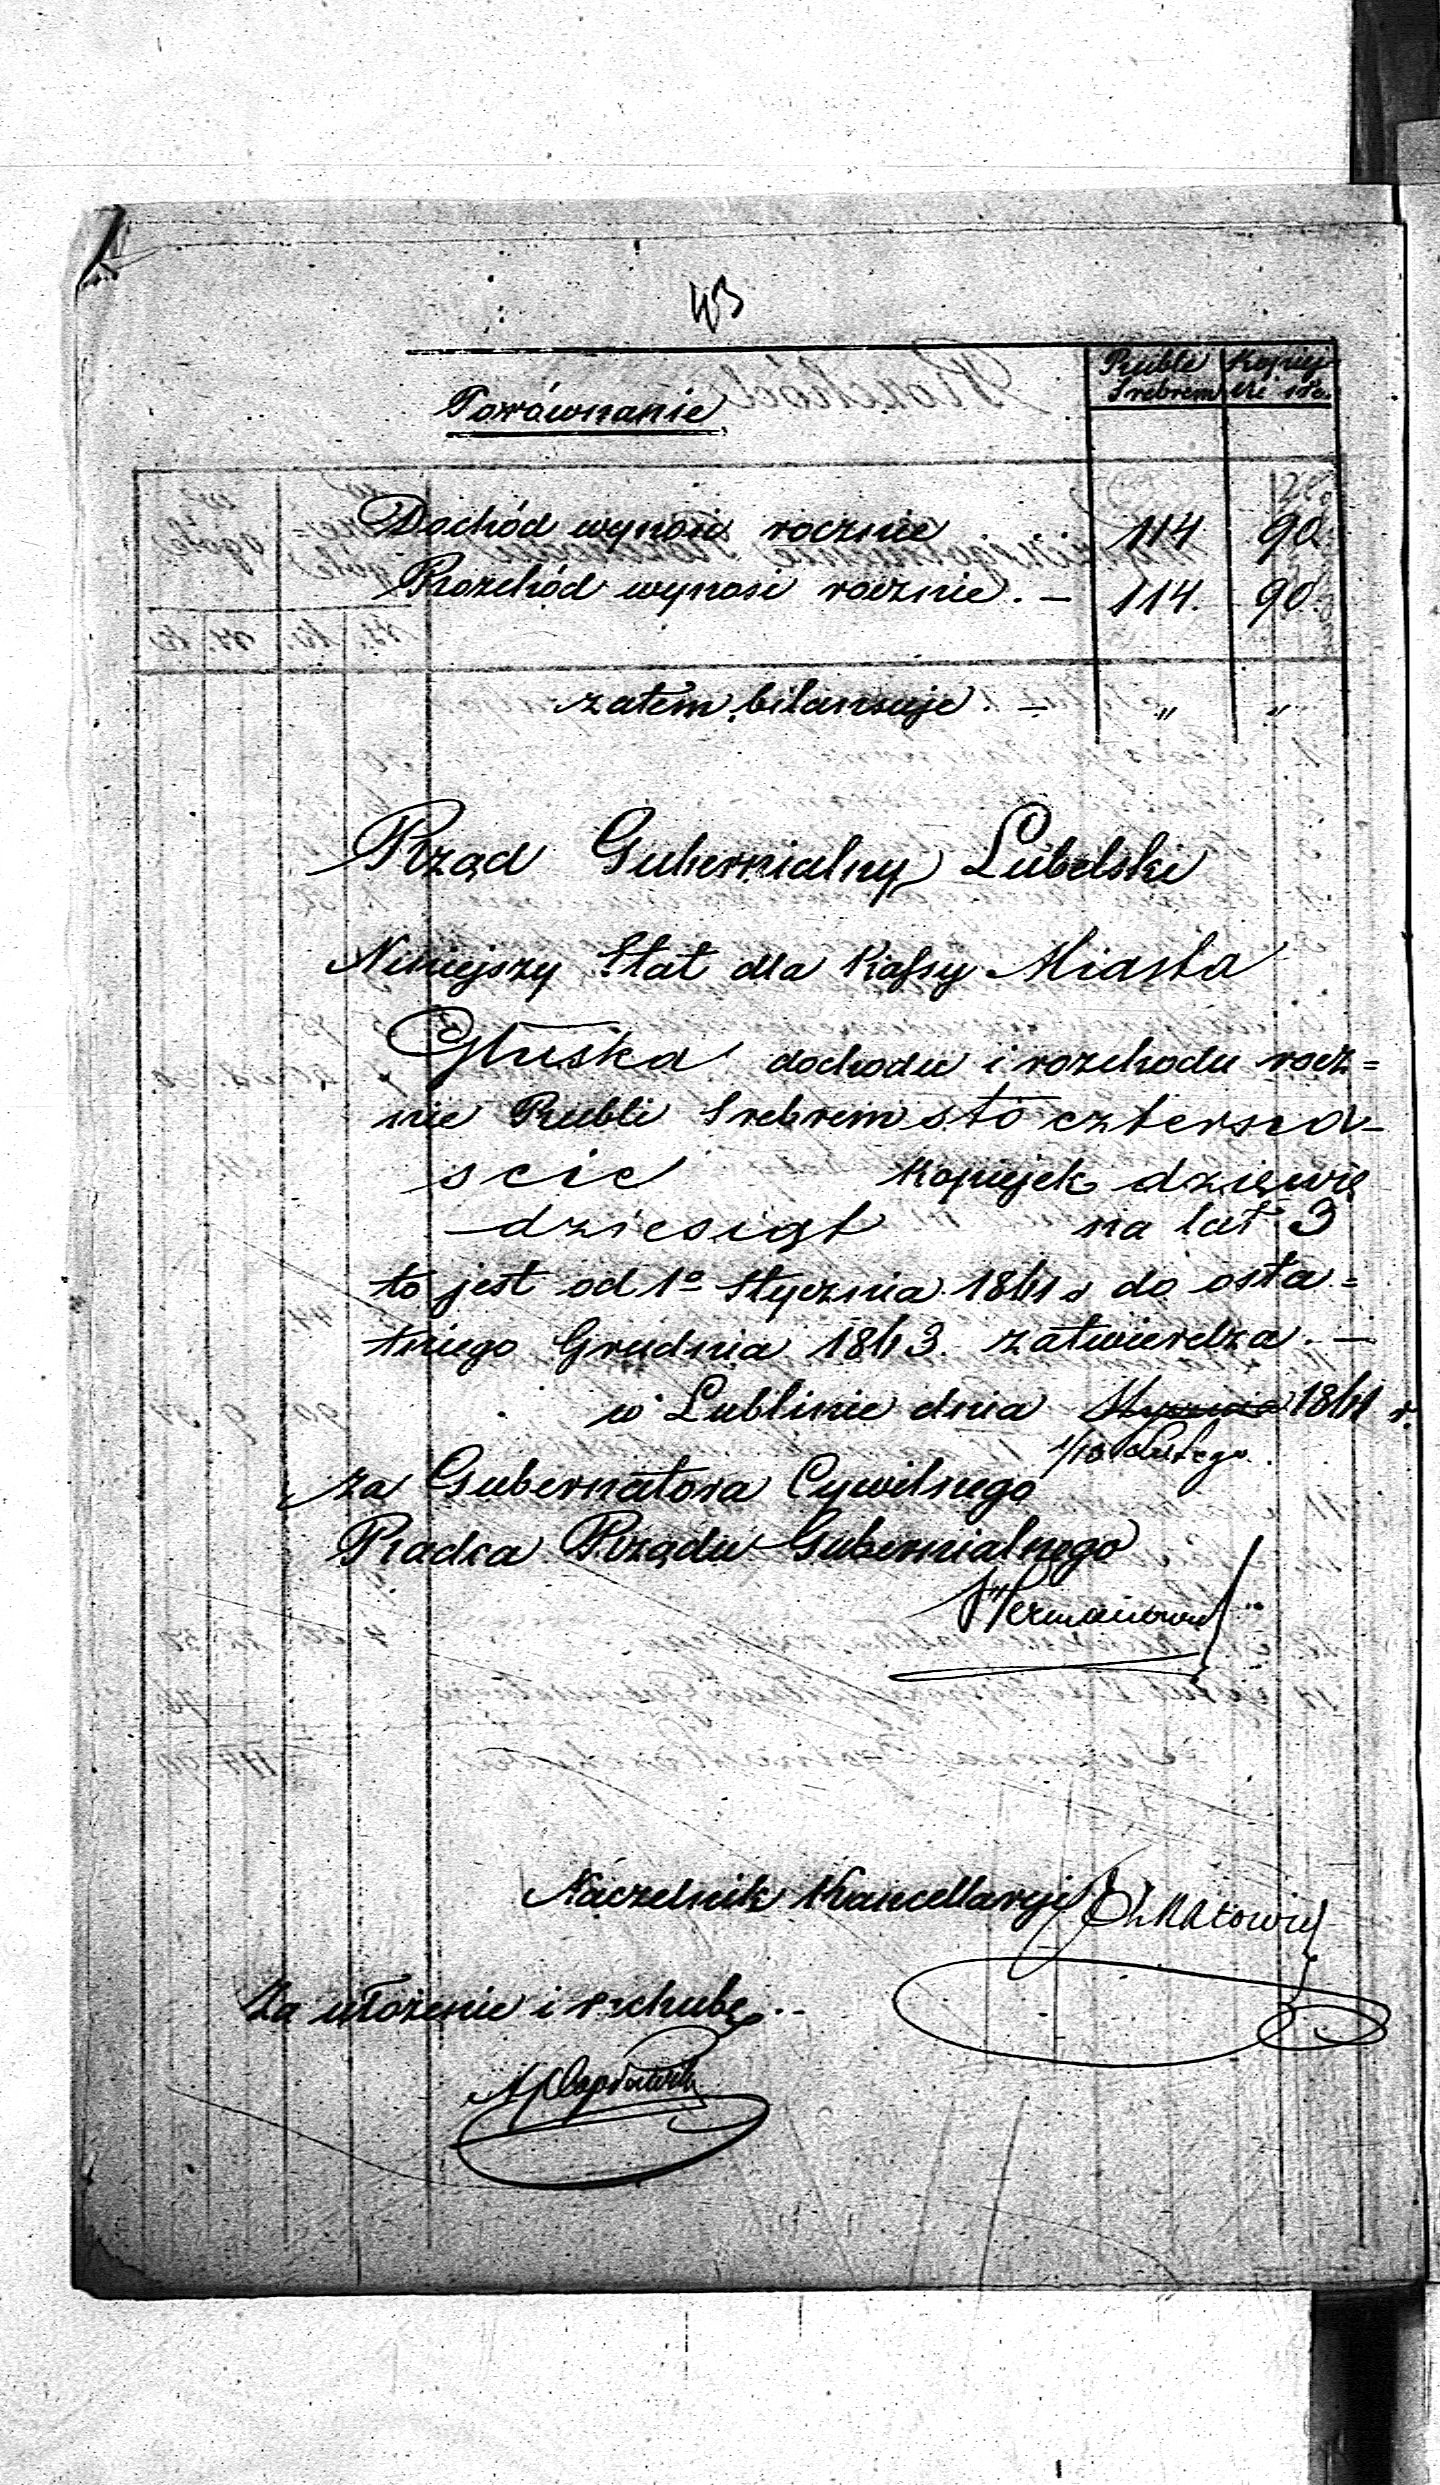 43
Porównanie
Ruble Srebrem
Kopiej-
ki
Dochód wynosi rocznie 114 90
Rozchód wynosi rocznie. — 114. 90.
zatem bilansuje. — " "
Rząd Gubernialny Lubelski
Niniejszy Etat dla Kassy Miasta
Głuska dochodu i rozchodu rocz=
nie Rubli Srebrem sto czterna-
ście Kopiejek dziewię
-dziesiąt na lat 3
to jest od 1o Stycznia 1841 r do osta=
tniego Grudnia 1843. zatwierdza. —
w Lublinie dnia Stycznia 1841 r.
1/13 Lutego
za Gubernatora Cywilnego
Radca Rządu Gubernialnego
Naczelnik Kancellaryi
Za ułożenie i rachubę..